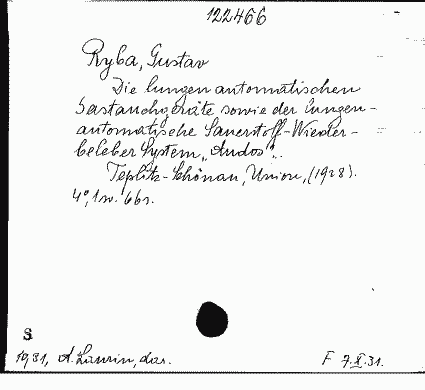 122466
Ryba, Gustav
Die lungenautomatischen
Gastauchgeräte sowie der lungen-
automatische Sauerstoff-Wieder-
beleber System „Audos“.
Teplitz-Schönau, Union, (1928).
4°, 1 sv. 66 s.
S
1931, A. Laurin, dar.
F 7.X.31.